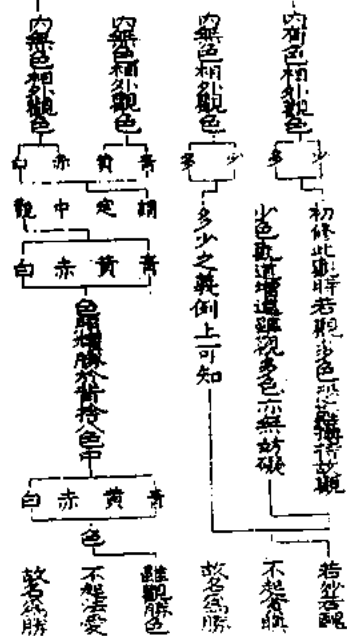 內有色相外觀色
少
多
初修此觀時若觀多色恐難攝持故觀
少色觀道增進雖觀多色亦無妨礙
若好若醜
不起貪瞋
故名為勝
內無色相外觀色
少
多
多少之義例上可知
內無色相外觀色
內無色相外觀色
青
黃
赤
白
觀中定謂
青
黃
赤
白
色階耀勝於背捨八色中
青
黃
赤
白
色
雖觀勝色
不起法愛
故名為勝